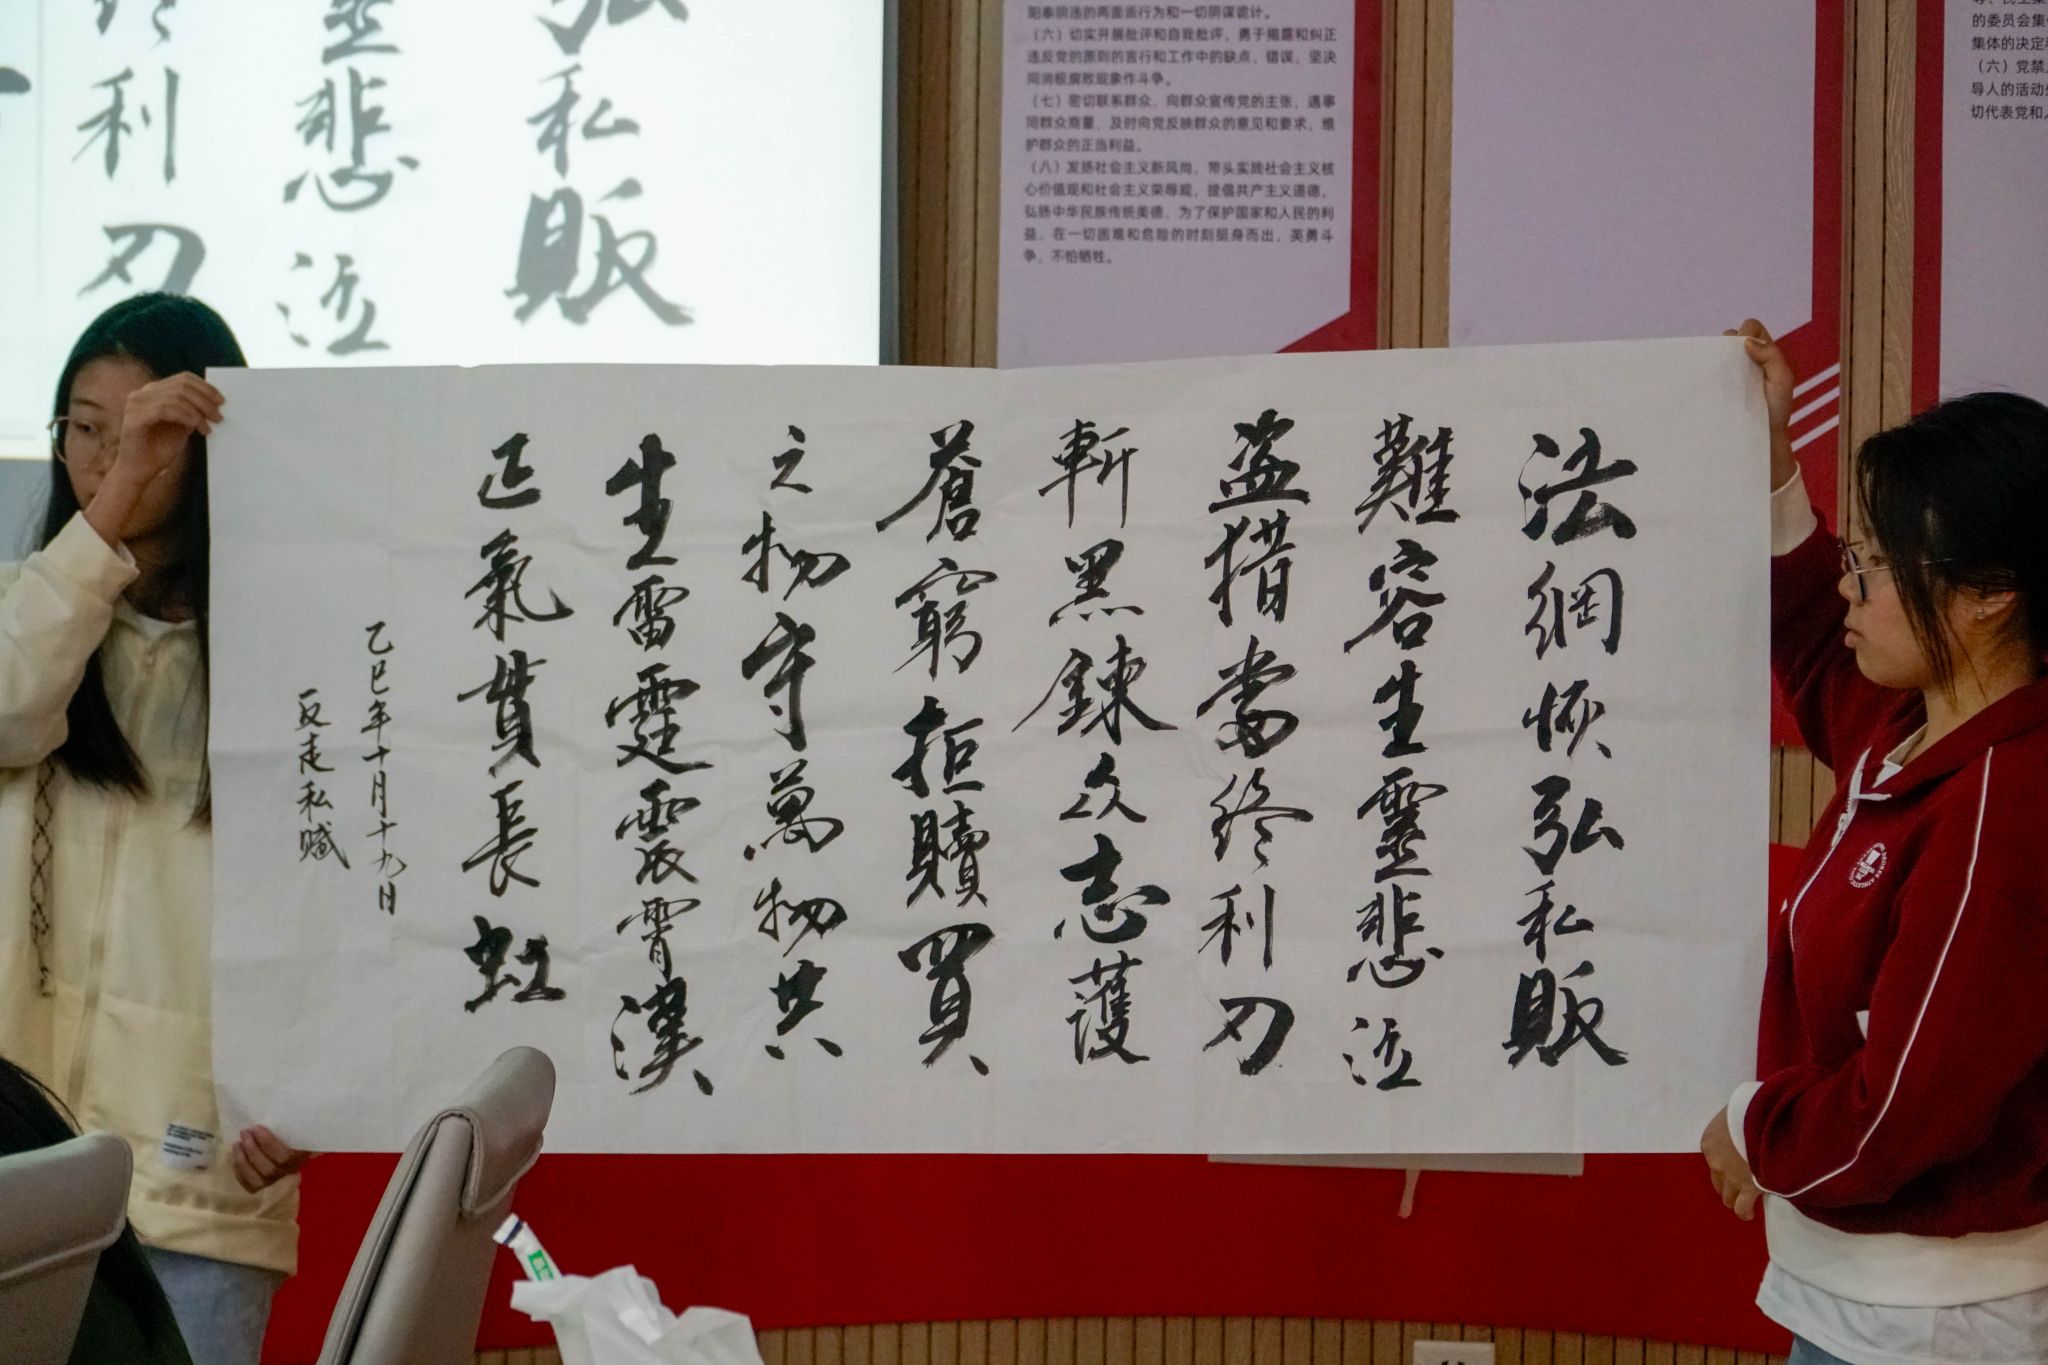 法網恢弘私販
難容生靈悲泣
盜措當終利刃
斬黑鍊众志護
蒼窮拒贖買
之物守萬物共
生雷霆震霄漢
正氣貫長虹
乙巳年十月十九日
反走私赋
弘私販
靈悲泣
終利刃
阳奉阴违的两面派行为和一切阴谋诡计。
（六）切实开展批评和自我批评，勇于揭露和纠正
违反党的原则的言行和工作中的缺点、错误，坚决
同消极腐败现象作斗争。
（七）密切联系群众，向群众宣传党的主张，遇事
同群众商量，及时向党反映群众的意见和要求，维
护群众的正当利益。
（八）发扬社会主义新风尚，带头实践社会主义核
心价值观和社会主义荣辱观，提倡共产主义道德，
弘扬中华民族传统美德，为了保护国家和人民的利
益，在一切困难和危险的时刻挺身而出，英勇斗
争，不怕牺牲。
的委员会集
集体的决定
（六）党禁
导人的活动
切代表党和